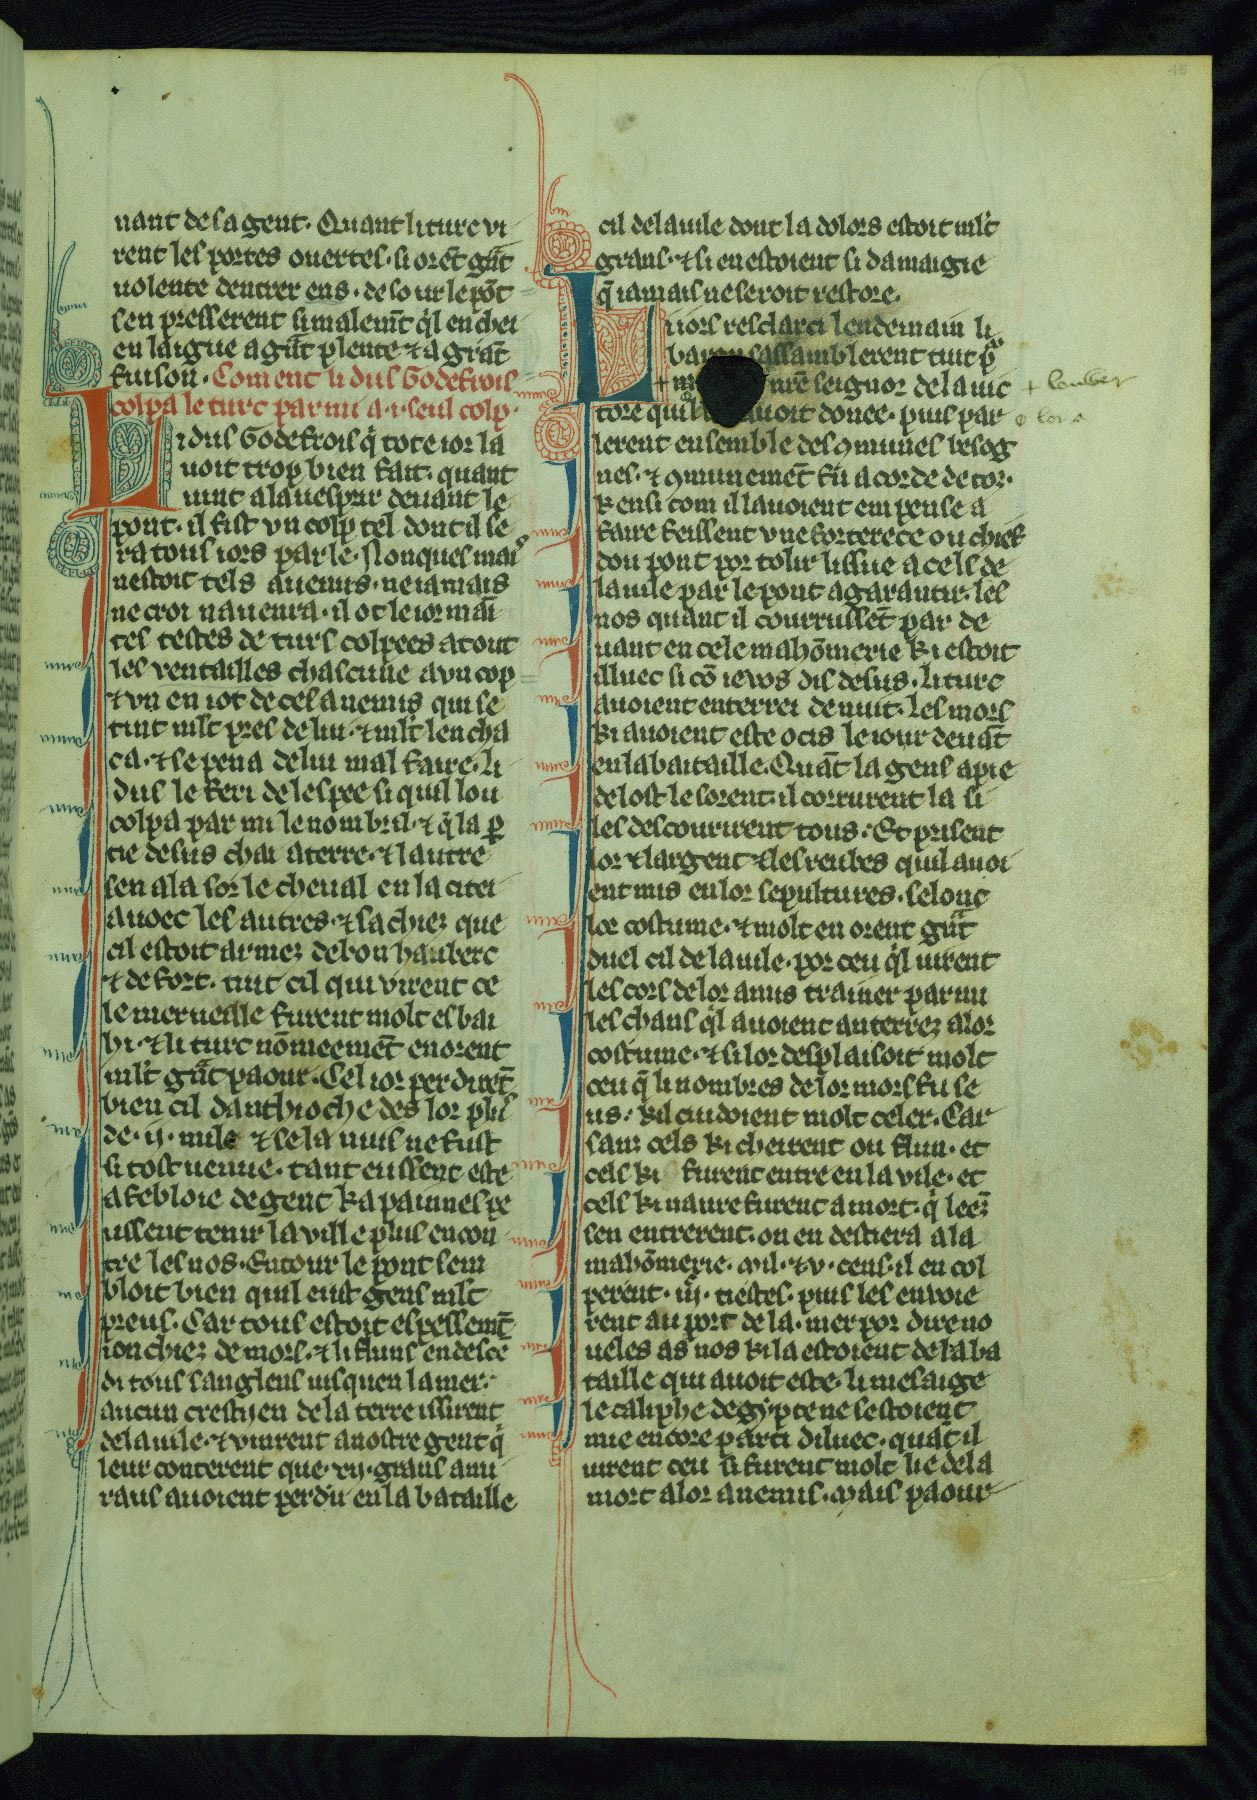 uant de sa gent. Quant li turc vi
rent les portes ouertes. si orẽt gñt
uolente dentrer ens. de so ur le põt
sen presserent si malemẽt q̃l en chei
en laigue a gñt plente ⁊ a grãt
fuison. Coment li dus Godefrois
colpa le turc par mi a .i. seul colp.
Li dus Godefrois q̃ tote ior la
uoit trop bien fait. quant
uint a la uespre deuant le
pont. il fist vn colp tel dont il se
ra tous iors par le. Nonques mais
nestoit tels auenus. ne iamais
ne croi nauenra. il ot le ior mai
tes testes de turs colpees a tout
les ventailles chascune a vn cop
⁊ vn en i ot de ces anemis qui se
tint mlt pres de lui. ⁊ mlt lencha
ca. ⁊ se pena de lui mal faire. li
dus le feri de lespee si quil lou
colpa par mi le nombril. ⁊ q̃ la p
tie desus chai a terre. ⁊ lautre
sen ala sor le cheual en la citei
auoec les autres. ⁊ sachiez que
cil estoit armez de bon hauberc
⁊ de fort. tuit cil qui virent ce
le merueille furent molt esbai
hi. ⁊ li turc nomeemẽt en orent
mlt gñt paour. Cel ior perdirẽt
bien cil danthioche des lor plus
de .ij. mile ⁊ se la nuis ne fust
si tost uenue. tant eussent este
afebloie de gent ka painnes pe
ussent tenir la ville plus encon
tre les nos. Entour le pont sem
bloit bien quil eust gens mlt
preus. Car tous estoit espessemẽt
ionchiez de mors. ⁊ li fluns en desce
di tous sanglens iusquen la mer.
aucun crestijen de la terre issirent
de la uile. ⁊ vinrent a nostre gent q̃
leur conterent que .xij. grans ami
raus auoient perdu en la bataille
cil de la uile dont la dolors estoit mlt
grans. ⁊ si en estoient si damaigie
q̃ iamais ne seroit restore.
Li iors resclarci lendemain li
baron sassamblerent tuit p̃
+ nrẽ seignor de la uic + louber
tore quil auoit donee. puis par
lerent ensemble des ꝯmunes besog
nes. ⁊ ꝯmunemẽt fu acorde de tor.
k ensi com il lauoient empense a
faire feissent vne forterece ou chief
dou pont por tolir lissue a cels de
la uile par le pont a garantir. les
nos quant il courrussẽt par de
uant en cele mahõmerie ki estoit
illuec si cõ ie vos dis desus. li turc
auoient enterrei de nuit. les mors
ki auoient este ocis le iour deuãt
en la bataille. Quãt la gens a pie
de lost le sorent. il corrurent la si
les descouurirent tous. Et prisent
lor ⁊ largent ⁊ les reubes quil auoi
ent mis en lor sepultures. selonc
lor costume. ⁊ molt en orent gñt
duel cil de la uile. por ceu q̃l uirent
les cors de lor amis trainer par mi
les chans q̃l auoient anterrez a lor
costume. ⁊ si lor desplaisoit molt
ceu q̃ li nombres de lor mors fu se
us. kil cuidoient molt celer. Car
sanz cels ki cheirent ou flun. et
cels ki furent entre en la vile. et
cels ki naure furent a mort. q̃ leẽz
sen entrerent. on en destiera a la
mahõmerie. mil. ⁊ v. cens. il en col
perent .iij. testes. puis les enuoie
rent au port de la mer por dire no
ueles as nos ki la estoient de la ba
taille qui auoit este. li mesaige
le caliphe degypte ne sestoient
mie encore parti diluec. quãt il
uirent ceu si furent molt lie de la
mort a lor anemis. Mais paour